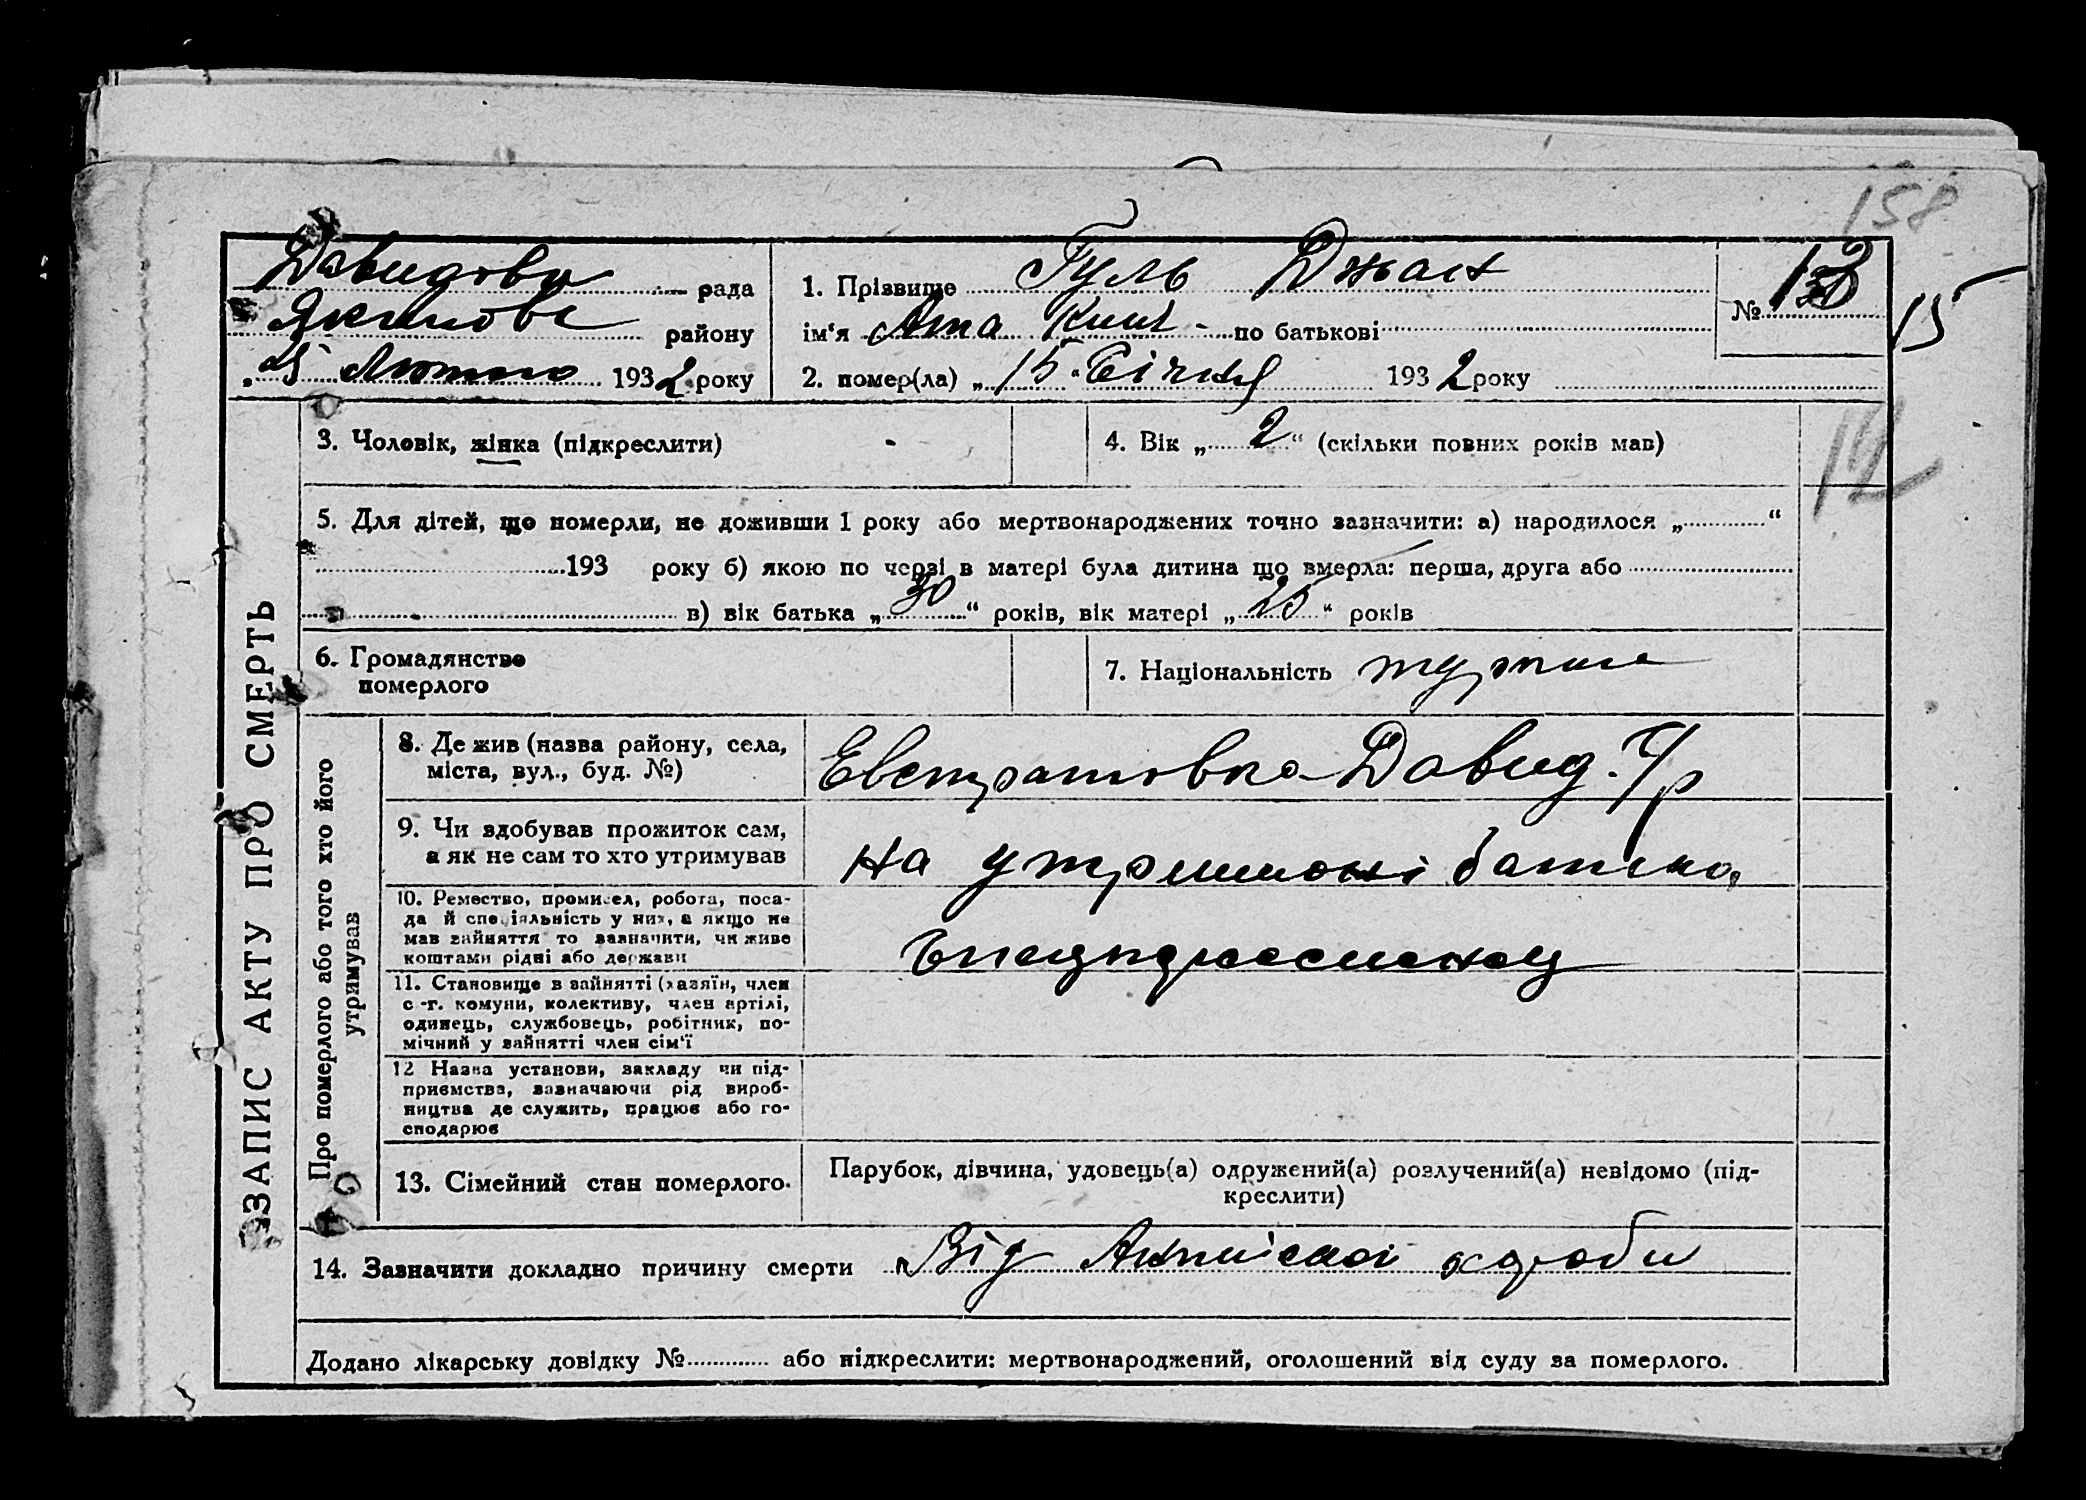 158
Давидовк рада
Якимовс району
25 Лютого 1932 року
1. Прізвище Гуль Джан
ім'я Ата Киш - по батькові
2. помер(ла) „15" Січня 1932 року
№ 15
ЗАПИС АКТУ ПРО СМЕРТЬ
3. Чоловік, жінка (підкреслити)
4. Вік „2" (скільки повних років мав)
12
5. Для дітей, що померли, не доживши 1 року або мертвонароджених точно зазначити: а) народилося „ "
193 року б) якою по черзі в матері була дитина що вмерла: перша, друга або
в) вік батька „30" років, вік матері „25" років
6. Громадянство
померлого
7. Національність
Про померлого або того хто його
утримував
8. Де жив (назва району, села,
міста, вул., буд. №)
Евстратовка Давид. с/р
9. Чи здобував прожиток сам,
а як не сам то хто утримував
на утриманні батька
10. Ремество, промисел, робота, поса-
да й спеціяльність у них, а якщо не
мав зайняття то зазначити, чи живе
коштами рідні або держави
11. Становище в зайнятті (хазяїн, член
с.-г. комуни, колективу, член артілі,
одинець, службовець, робітник, по-
мічний у зайнятті член сім'ї
12 Назва установи, закладу чи під-
приємства, зазначаючи рід вироб-
ництва де служить, працює або го-
сподарює
13. Сімейний стан померлого.
Парубок, дівчина, удовець(а) одружений(а) розлучений(а) невідомо (під-
креслити)
14. Зазначити докладно причину смерти Від хороби
Додано лікарську довідку № або підкреслити: мертвонароджений, оголошений від суду за померлого.